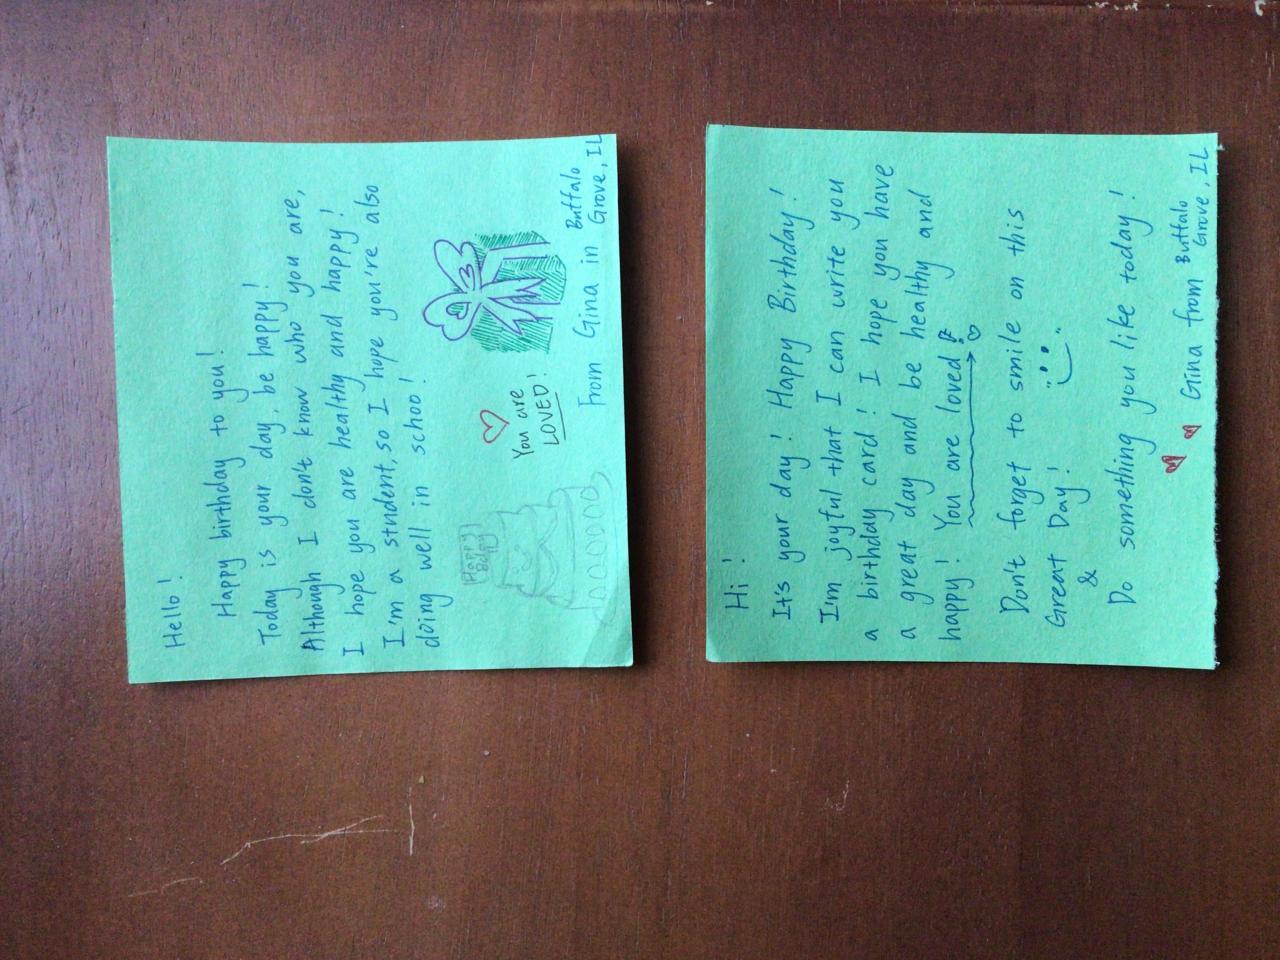 Hello!
Happy birthday to you!
Today is your day, be happy!
Although I don't know who you are,
I hope you are healthy and happy!
I'm a student, so I hope you're also
doing well in school!
Happy
Bday
You are
LOVED!
From Gina in Buffalo
Grove, IL
Hi!
It's your day! Happy Birthday!
I'm joyful that I can write you
a birthday card! I hope you have
a great day and be healthy and
happy! You are loved
Don't forget to smile on this
Great Day!
&
Do something you like today!
Gina from Buffalo
Grove, IL